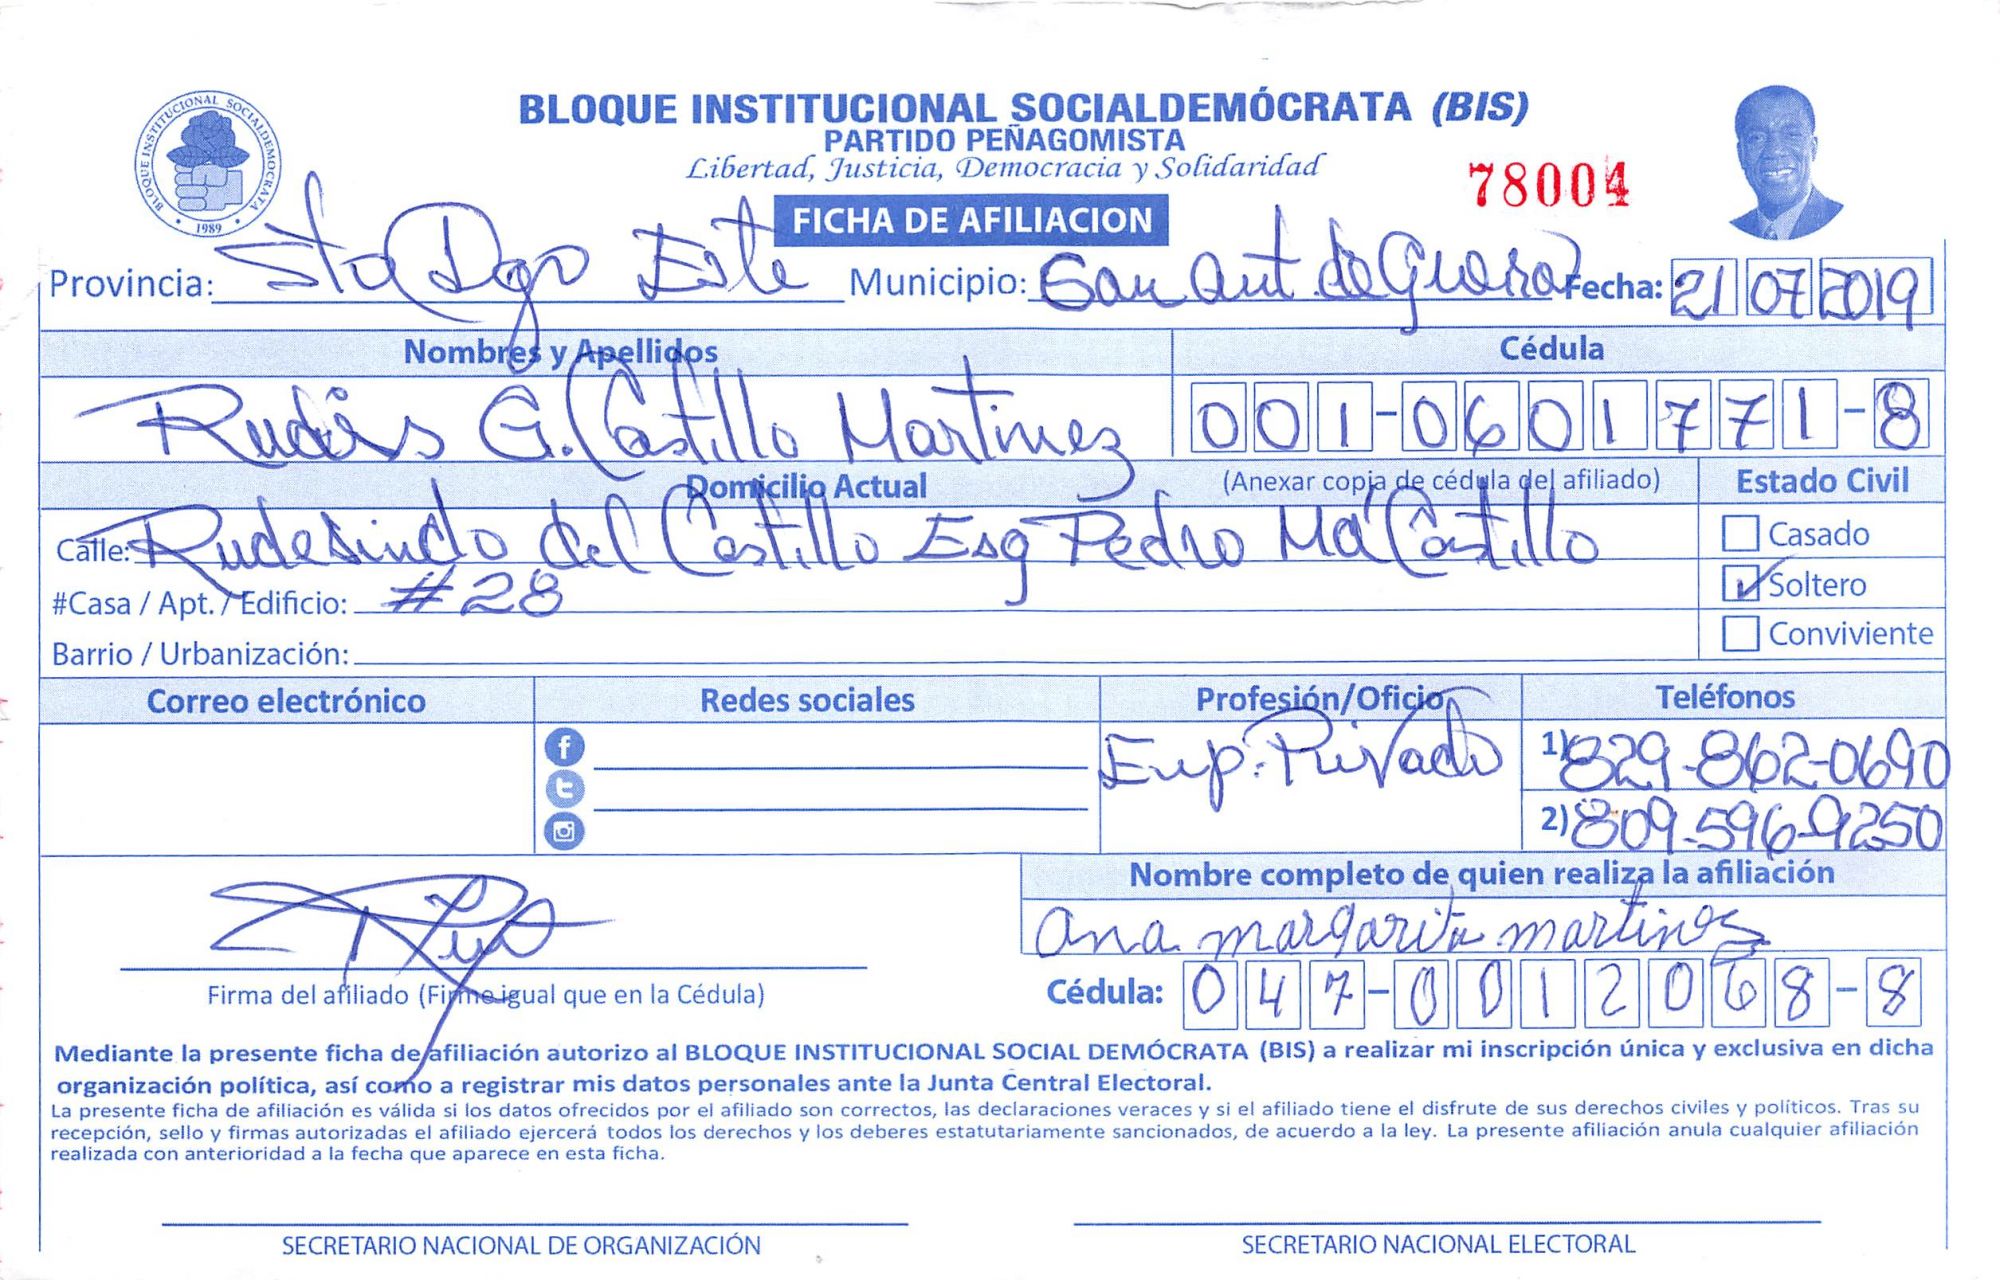 BLOQUE INSTITUCIONAL SOCIALDEMOCRATA
1989
BLOQUE INSTITUCIONAL SOCIALDEMÓCRATA (BIS)
PARTIDO PEÑAGOMISTA
Libertad, Justicia, Democracia y Solidaridad
78004
FICHA DE AFILIACION
Provincia: Sto Dgo Este Municipio: San Ant. de Guerra Fecha: 21 07 2019
Nombres y Apellidos Cédula
Rudis G. Castillo Martinez 001-0601771-8
Domicilio Actual (Anexar copia de cédula del afiliado) Estado Civil
Calle: Rudesindo del Castillo Esq Pedro Ma Castillo
Casado
#Casa / Apt. / Edificio: #28
Soltero
Barrio / Urbanización:
Conviviente
Correo electrónico Redes sociales Profesión/Oficio Teléfonos
Emp. Privado 1) 829-862-0690
2) 809-596-9250
Nombre completo de quien realiza la afiliación
Ana margarita martinez
Firma del afiliado (Firme igual que en la Cédula) Cédula: 047-0012068-8
Mediante la presente ficha de afiliación autorizo al BLOQUE INSTITUCIONAL SOCIAL DEMÓCRATA (BIS) a realizar mi inscripción única y exclusiva en dicha
organización política, así como a registrar mis datos personales ante la Junta Central Electoral.
La presente ficha de afiliación es válida si los datos ofrecidos por el afiliado son correctos, las declaraciones veraces y si el afiliado tiene el disfrute de sus derechos civiles y políticos. Tras su
recepción, sello y firmas autorizadas el afiliado ejercerá todos los derechos y los deberes estatutariamente sancionados, de acuerdo a la ley. La presente afiliación anula cualquier afiliación
realizada con anterioridad a la fecha que aparece en esta ficha.
SECRETARIO NACIONAL DE ORGANIZACIÓN SECRETARIO NACIONAL ELECTORAL